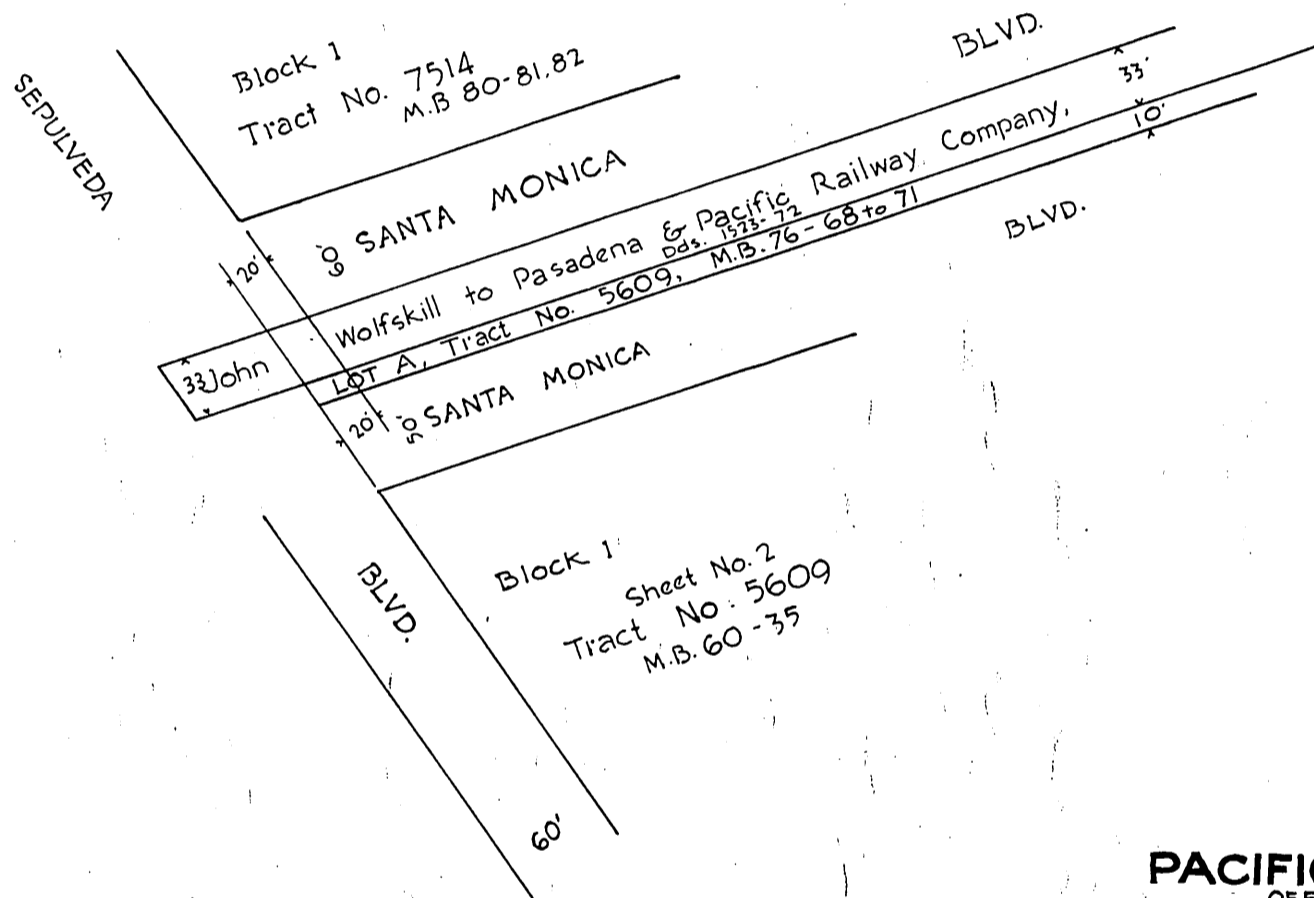 SEPULVEDA
Block 1
Tract No. 7514
M.B 80-81,82
BLVD.
60' SANTA MONICA
33'
10'
20'
33' John Wolfskill to Pasadena & Pacific Railway Company,
Dds. 1523-72
LOT A, Tract No. 5609, M.B. 76-68 to 71
BLVD.
20'
50' SANTA MONICA
BLVD.
Block 1
Sheet No. 2
Tract No. 5609
M.B. 60-35
60'
PACIFIC